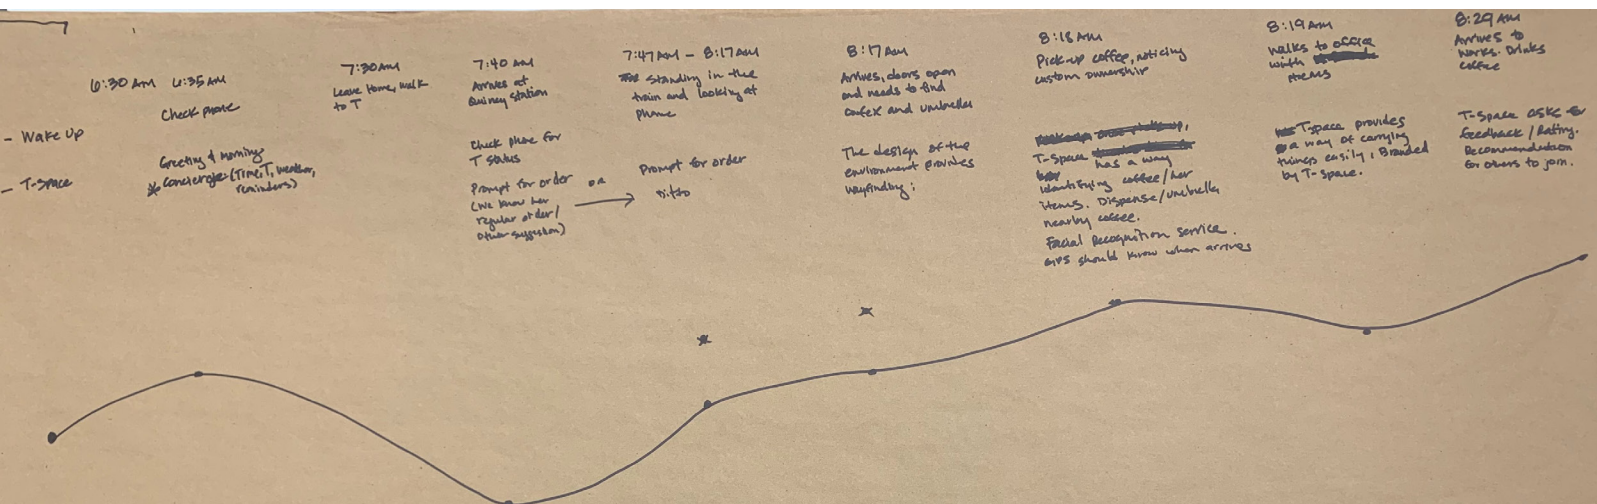 6:30 AM
- Wake up
- T-Space
6:35 AM
Check phone
Greeting & Morning
* Concierge (Time, T, weather,
reminders)
7:30 AM
Leave Home, walk
to T
7:40 AM
Arrives at
Quincy station
Check phone for
T status
Prompt for order
(we know her
regular order/
other suggestion)
OR
7:47 AM - 8:17 AM
standing in the
train and looking at
phone
Prompt for order
ditto
8:17 AM
Arrives, doors open
and needs to find
coffee and umbrella
The design of the
environment provides
wayfinding;
8:18 AM
Pick-up coffee, noticing
custom ownership
T-Space has a way
identifying coffee/her
items. Dispense/umbrella
nearby coffee.
Facial Recognition Service.
GPS should know when arrives
8:19 AM
walks to office
with
items
T-space provides
a way of carrying
things easily, Branded
by T-Space.
8:29 AM
Arrives to
works. Drinks
coffee
T-Space asks for
feedback / Rating.
Recommendation
for others to join.